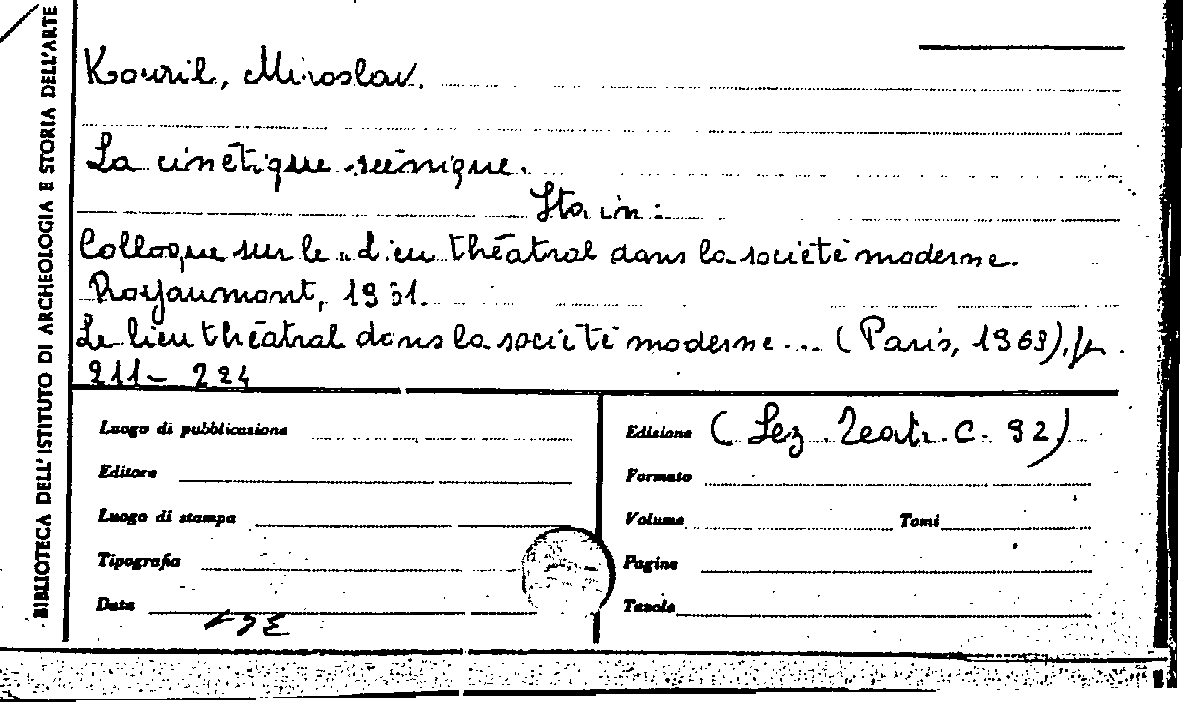 BIBLIOTECA DELL'ISTITUTO DI ARCHEOLOGIA E STORIA DELL'ARTE
Kouril, Miroslav.
La cinétique scénique.
Sta in:
Colloque sur le lieu théâtral dans la société moderne.
Royaumont, 1961.
Le lieu théâtral dans la société moderne... (Paris, 1963), p.
211-224
Luogo di pubblicazione
Editore
Luogo di stampa
Tipografia
Data
Edizione (Sez. Teatr. C. 92)
Formato
Volume Tomi
Pagine
Tavole